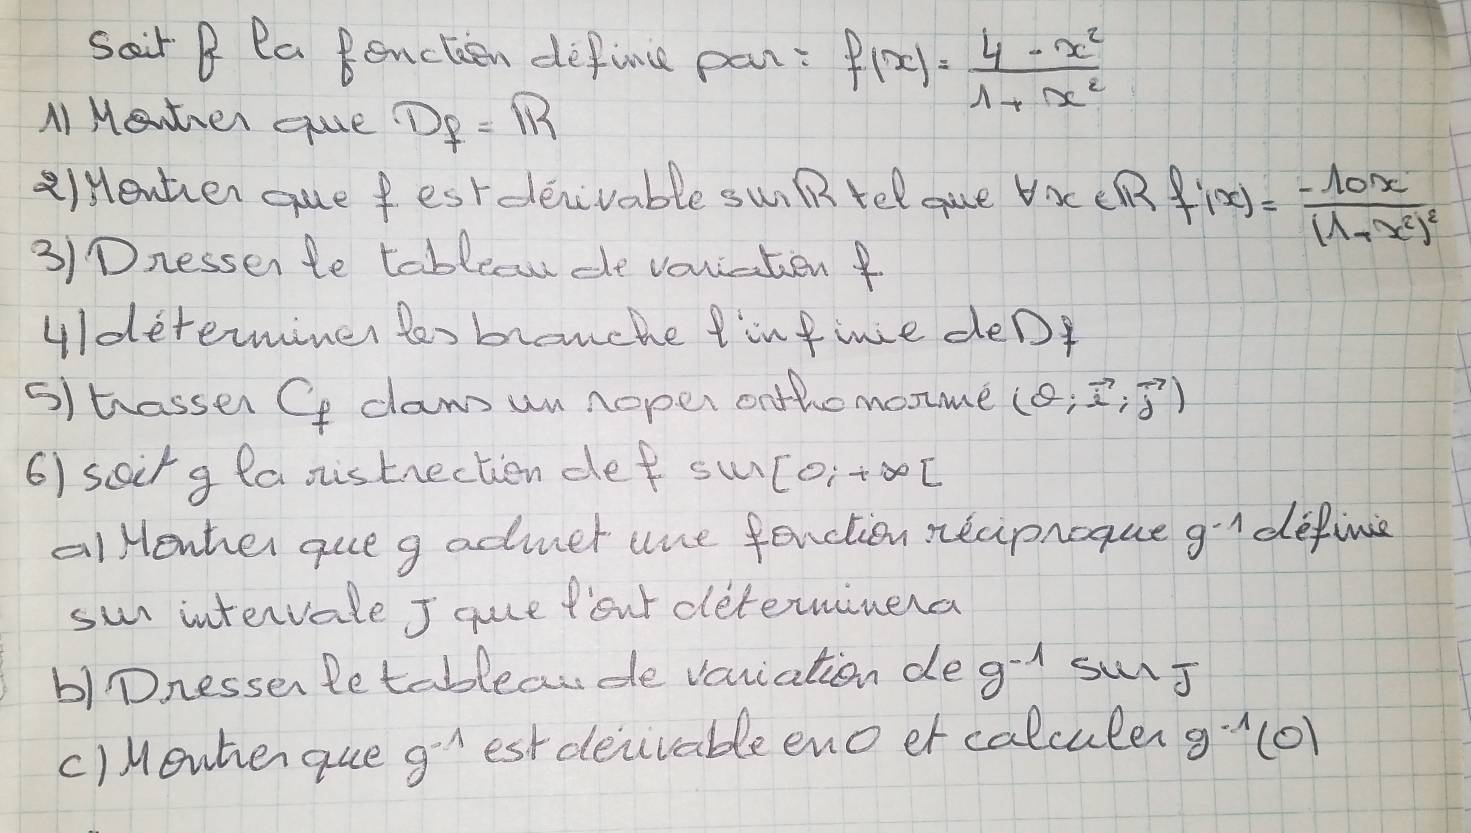 Soit f la fonction définie par : f(x) = (4 - x²)/(1 + x²)
1) Montrer que Df = ℝ
2) Montrer que f est dérivable sur ℝ tel que ∀x ∈ ℝ f'(x) = -10x/(1+x²)²
3) Dresser le tableau de variation f
4) déterminer les branche l'infinie de Df
5) trasser Cf dans un roper orthonormé (O; i⃗; j⃗)
6) soit g la ristrection de f sur [0; +∞[
a) Montrer que g admet une fonction réciproque g-1 définie
sur intervale J que l'ont déterminera
b) Dresser le tableau de variation de g-1 sur J
c) Montrer que g-1 est dérivable en 0 et calculer g-1(0)